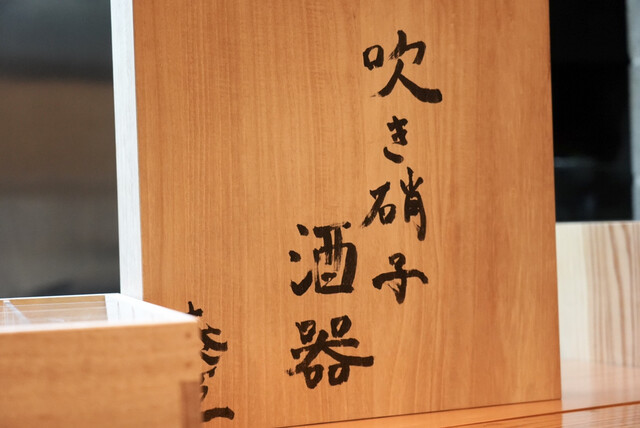 吹き硝子
酒器